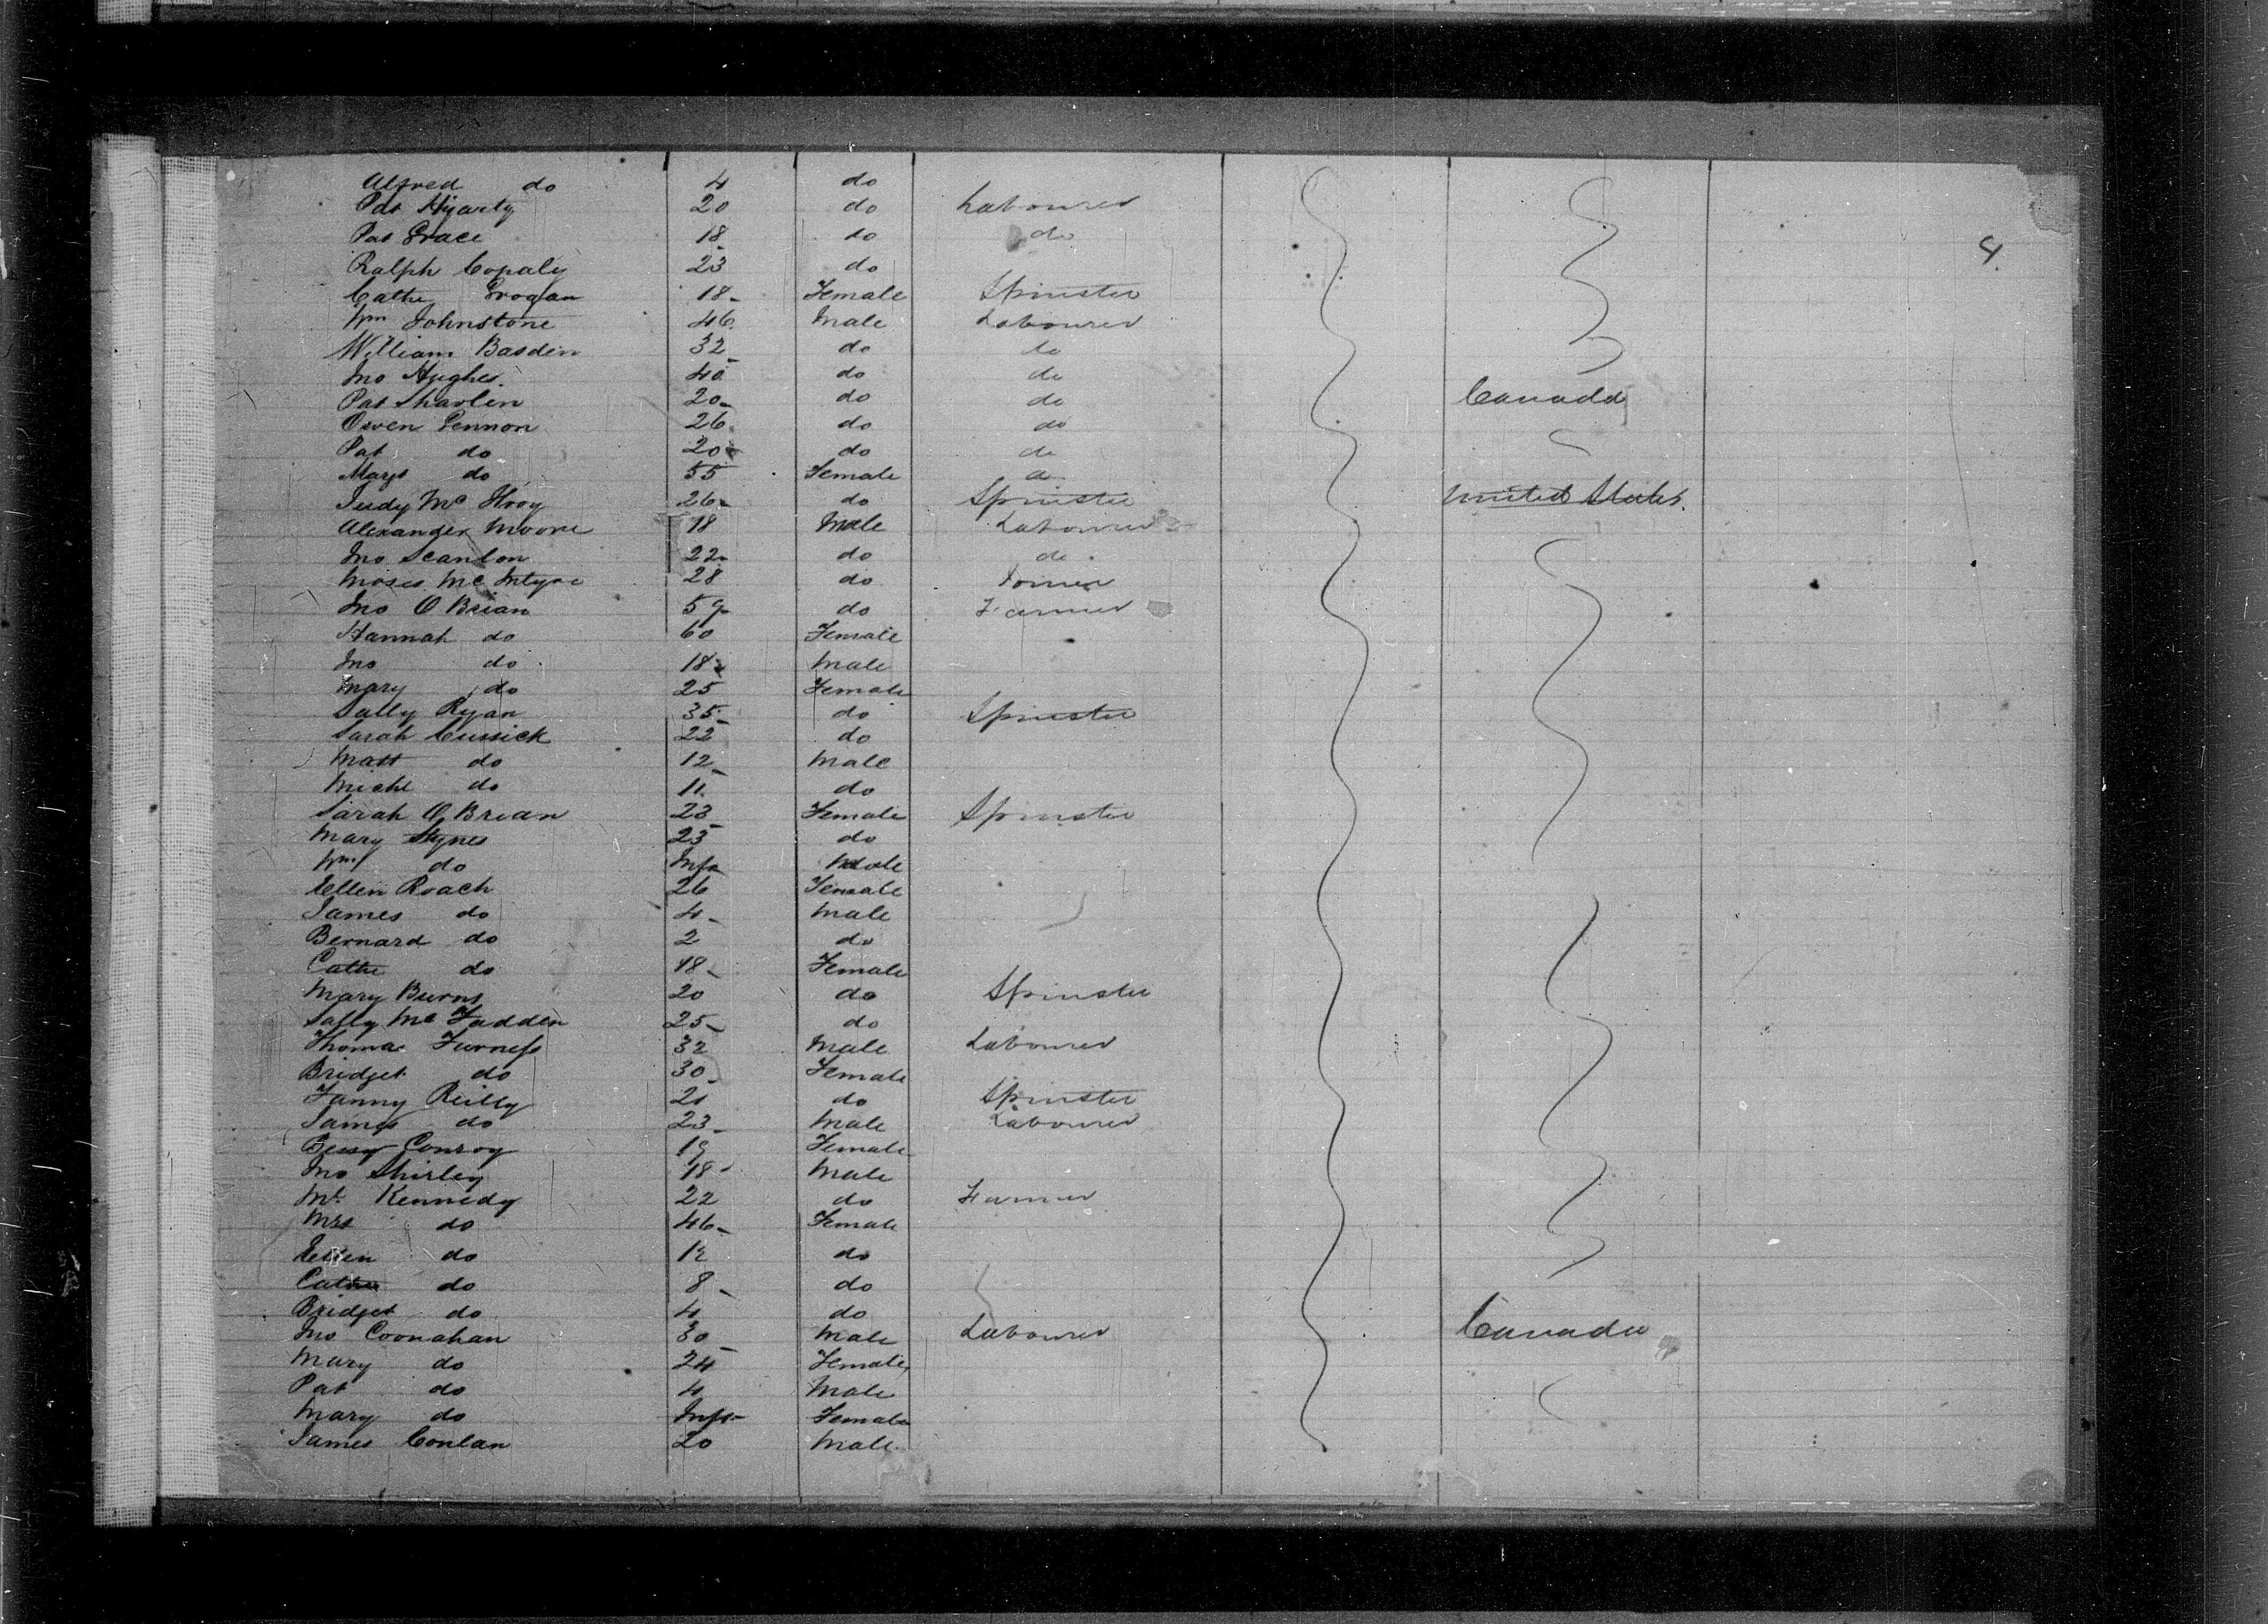 Alfred do 4 do
Pat Hyarty 20 do Labourer
Pat Grace 18 do do
4
Ralph Copaly 23 do
Cathe Grogan 18 Female Spinster
Wm Johnstone 46 Male Labourer
William Basden 32 do do
Jno Hughes 40 do do
Pat Sharlen 20 do do Canada
Owen Gennon 26 do do
Pat do 20 do do
Mary do 55 Female do
Judy Mc 26 do Spinster United States
Alexander Moore 18 Male Labourer
Jno Scanlon 22 do do
Moses Mc Intyre 28 do Joiner
Jno O Brian 59 do Farmer
Hannah do 60 Female
Jno do 18 Male
Mary do 25 Female
Sally Ryan 35 do Spinster
Sarah Cussick 22 do
Matt do 12 Male
Michl do 11 do
Sarah O Brian 23 Female Spinster
Mary Hynes 25 do
Wm do Inft Male
Ellen Roach 26 Female
James do 4 Male
Bernard do 2 do
Cathe do 18 Female
Mary Burns 20 do Spinster
Sally Mc Fadden 25 do
Thomas Furness 32 Male Labourer
Bridget do 30 Female
Fanny Reilly 21 do Spinster
James do 23 Male Labourer
Bessy Conroy 19 Female
Jno Shirley 18 Male
Mt Kennedy 22 do Farmer
Mrs do 46 Female
Ellen do 12 do
Cathe do 8 do
Bridget do 4 do
Jno Coonahan 30 Male Labourer Canada
Mary do 24 Female
Pat do 4 Male
Mary do Inft Female
James Conlan 20 Male